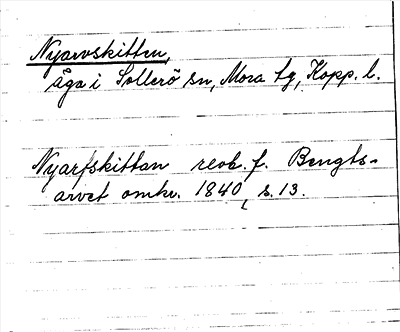 Nyarvskitten,
äga i Sollerö sn, Mora tg, Kopp. l.
Nyarfskittan reob. f. Bengts-
arvet omkr. 1840, s. 13.